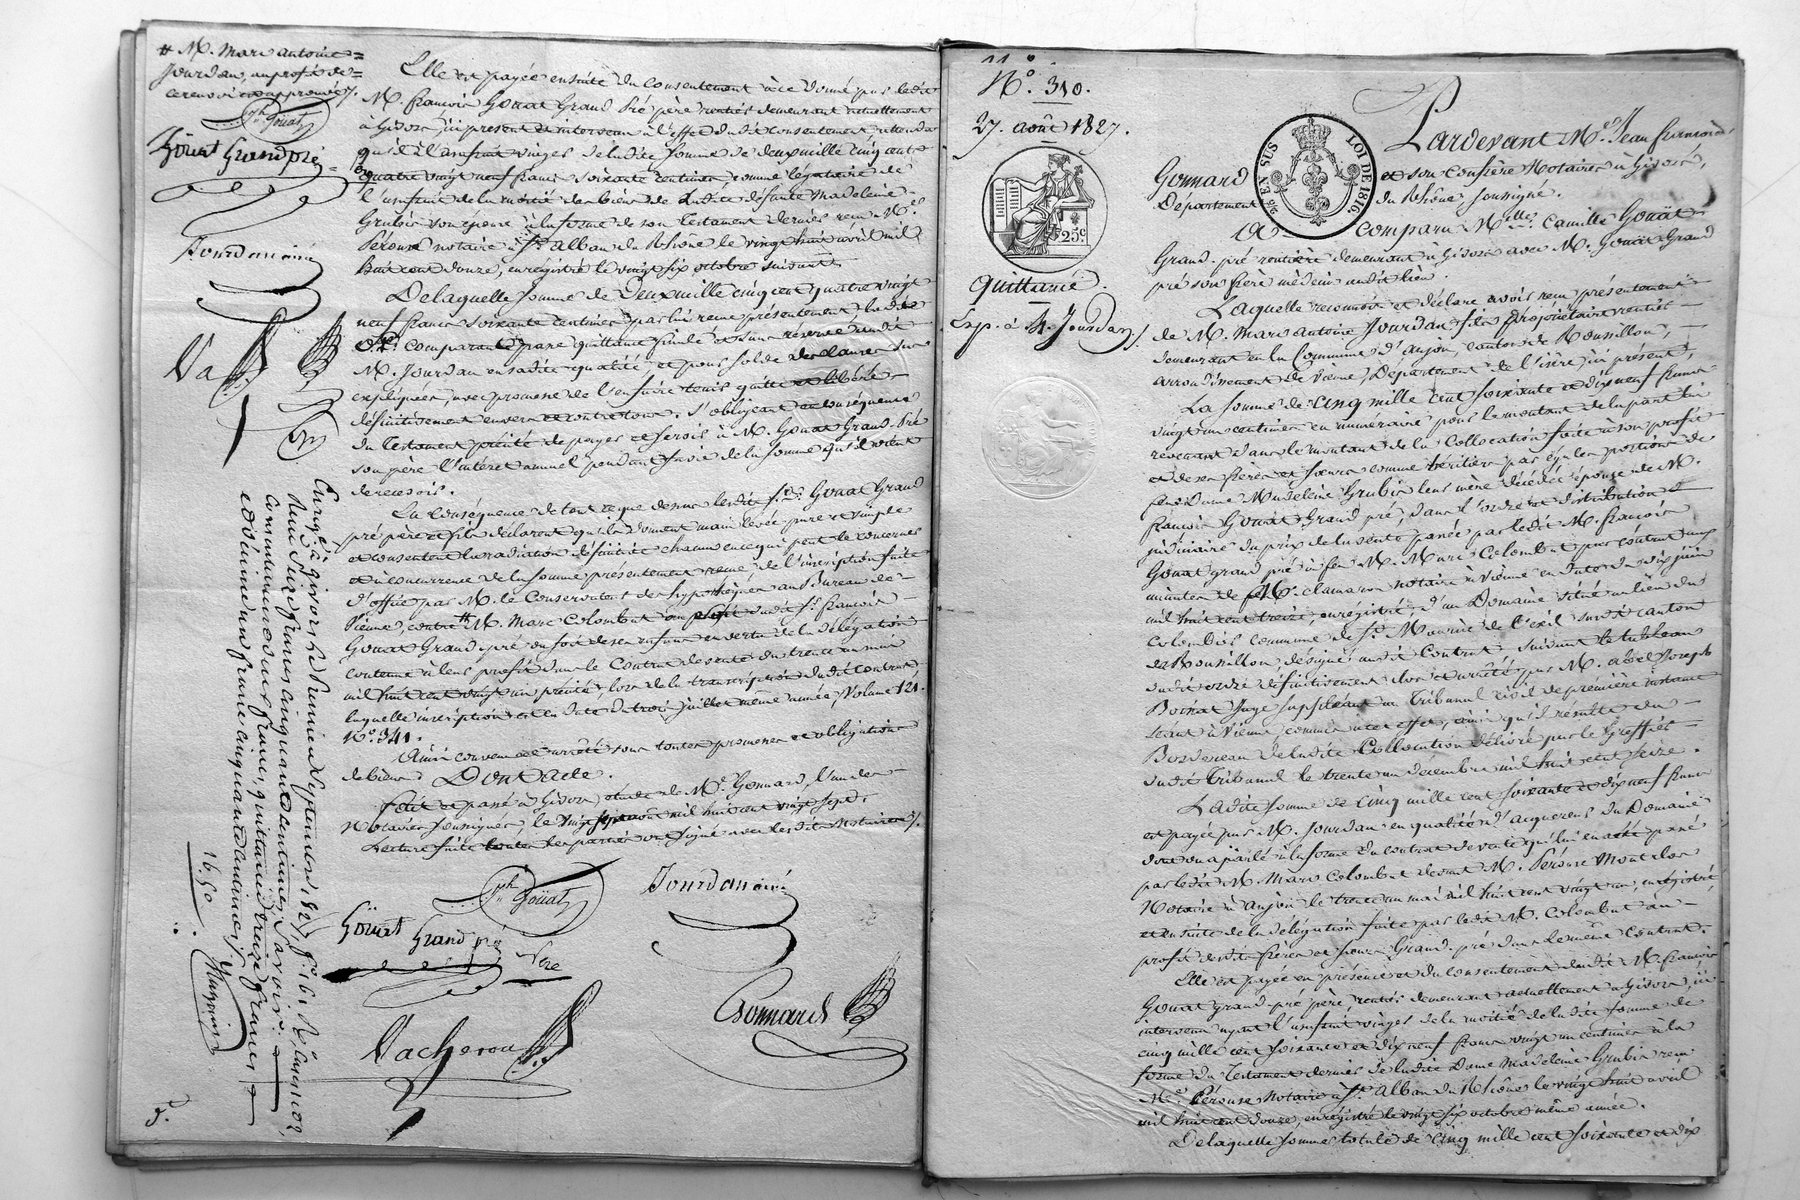 # M. Marc antoine=
Jourdan, au profit de=
ce renvoi approuvé /.
Jph Goüat
Goüat Grand pré
Jourdan ainé
Va
Elle est payée ensuite du consentement à ce donné par ledit
M. françois Goüat Grand Pré père rentier demeurant actuellement
à Givors, ici présent et intervenu à l'effet dudit consentement attendu
qu'il a l'usufruit viager de ladite somme de deux mille cinq cent
quatre vingt neuf francs soixante centimes comme légataire de
l'usufruit de la moitié des biens de ladite défunte Madeleine
Grubis son épouse à la forme de son Testament dernier reçu Me
Pérouse notaire à St. alban du Rhône le vingt huit avril mil
huit cent douze, enregistré le vingt six octobre suivant.
De laquelle somme de Deux mille cinq cent quatre vingt
neuf francs soixante centimes par lui reçue présentement ledit
Sr. comparant passe quittance finale et sans réserve audit
M. Jourdan en sadite qualité, et pour solde des causes sus
expliquées, avec promesse de l'en faire tenir quitte et libéré
définitivement envers et contre tous. S'obligeant en conséquence
du Testament précité de payer et servir à M. Goüat Grand Pré
son père l'intérêt annuel pendant sa vie de la somme qu'il vient
de recevoir.
En conséquence de tout ce que dessus lesdits Srs. Goüat Grand
pré père et fils déclarent qu'ils donnent main levée pure et simple
et consentent la radiation définitive chacun en ce qui peut le concerner
et à concurrence de la somme présentement reçue de l'inscription faite
d'office par M. le Conservateur des hypothèques au Bureau de
Vienne, contre # M. Marc Colombat au profit dudit Sr. françois
Goüat Grand pré ou soit de ses enfans en vertu de la délégation
contenue à leur profit dans le Contrat de vente du trente un mai
mil huit cent vingt un précité, lors de la transcription dudit contrat
laquelle inscription est en date du trois juillet même année, Volume 121.
No. 341.
Ainsi convenu et arrêté sous toutes promesses et obligations
de biens Dont acte.
Fait et passé à Givors, étude de Me. Gonnard, l'un des
Notaires soussignés, le vingt sept août mil huit cent vingt sept.
Lecture faite toutes les parties ont signé avec lesdits Notaires /.
Jph Goüat
Jourdan ainé
Goüat Grand pré
Père
Gonnard
Vacheron
Enregé à givors le Premier Septembre 1827, fo. 161. Ro. cases 1 et 2,
Reçu Seize francs cinquante centimes, Savoir:
Consentement deux francs, quittance treize francs
et dixieme un franc cinquante centimes /.
16.50
No. 310.
27. août 1827.
25c
Quittance.
Exp. à M. Jourdan /.
EN SUS
LOI DE 1816
Pardevant Me. Jean françois
Gonnard et son confrère Notaires à Givors,
Département du Rhône soussignés.
a comparu Mlle. Camille Goüat
Grand-pré rentière demeurant à Givors avec M. Goüat Grand
pré son frère médecin audit lieu.
Laquelle reconnaît et déclare avoir reçu présentement
de M. Marc antoine Jourdan fils propriétaire rentier
demeurant en la Commune d'anjou, canton de Roussillon,
arrondissement de Vienne, Département de l'isère, ici présent,
La somme de Cinq mille cent soixante et dix neuf francs
vingt un centimes en numéraire pour le montant de la part lui
revenant dans le montant de la Collocation faite à son profit
et de ses frères et soeurs comme héritiers par égales portions de
feue Dame Madeleine Grubis leur mère décédée épouse de M.
françois Goüat Grand pré, dans l'ordre et distribution
judiciaire du prix de la vente passée par ledit M. françois
Goüat Grand pré à feu M. Marc Colombat par contrat aux
minutes de Me. clamaron notaire à Vienne en date du dix juin
mil huit cent treize, enregistré, d'un Domaine situé au lieu du
Colombier commune de St. Maurice de l'exil susdit canton
de Roussillon, désigné audit Contrat suivant le tableau
dudit ordre définitivement clos et arrêté par M. abel Joseph
Boissat Juge suppléant au Tribunal civil de première instance
séant à Vienne, commis à cet effet, ainsi qu'il résulte du
Bordereau de ladite Collocation délivré par le Greffier
dudit Tribunal le trente un décembre mil huit cent seize.
Ladite somme de cinq mille cent soixante et dix neuf francs
est payée par M. Jourdan en qualité d'acquéreur du Domaine
dont on a parlé à la forme du contrat de vente qui lui en a été passé
par ledit M. Marc Colombat devant M. Pérouse Mont clos
Notaire à anjou le trente un mai mil huit cent vingt un, enregistré
et ensuite de la délégation faite par ledit M. Colombat au
profit desdits frères et soeurs Grand-pré dans le même Contrat.
Elle est payée en présence et du consentement dudit M. françois
Goüat Grand pré père rentier demeurant actuellement à Givors, ici
intervenu ayant l'usufruit viager de la moitié de ladite somme de
cinq mille cent soixante et dix neuf francs vingt un centimes à la
forme du Testament dernier de ladite Dame Madeleine Grubis reçu
Me. Pérouse Notaire à St. Alban du Rhône le vingt huit avril
mil huit cent douze, enregistré le vingt six octobre même année.
De laquelle somme totale de cinq mille cent soixante et dix